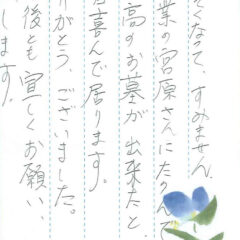 そくなって、すみません。
業の宮原さんにたのんで
高のお墓が出来たと、
喜んで居ります。
りがとう、ございました。
後とも宜しくお願い、
します。